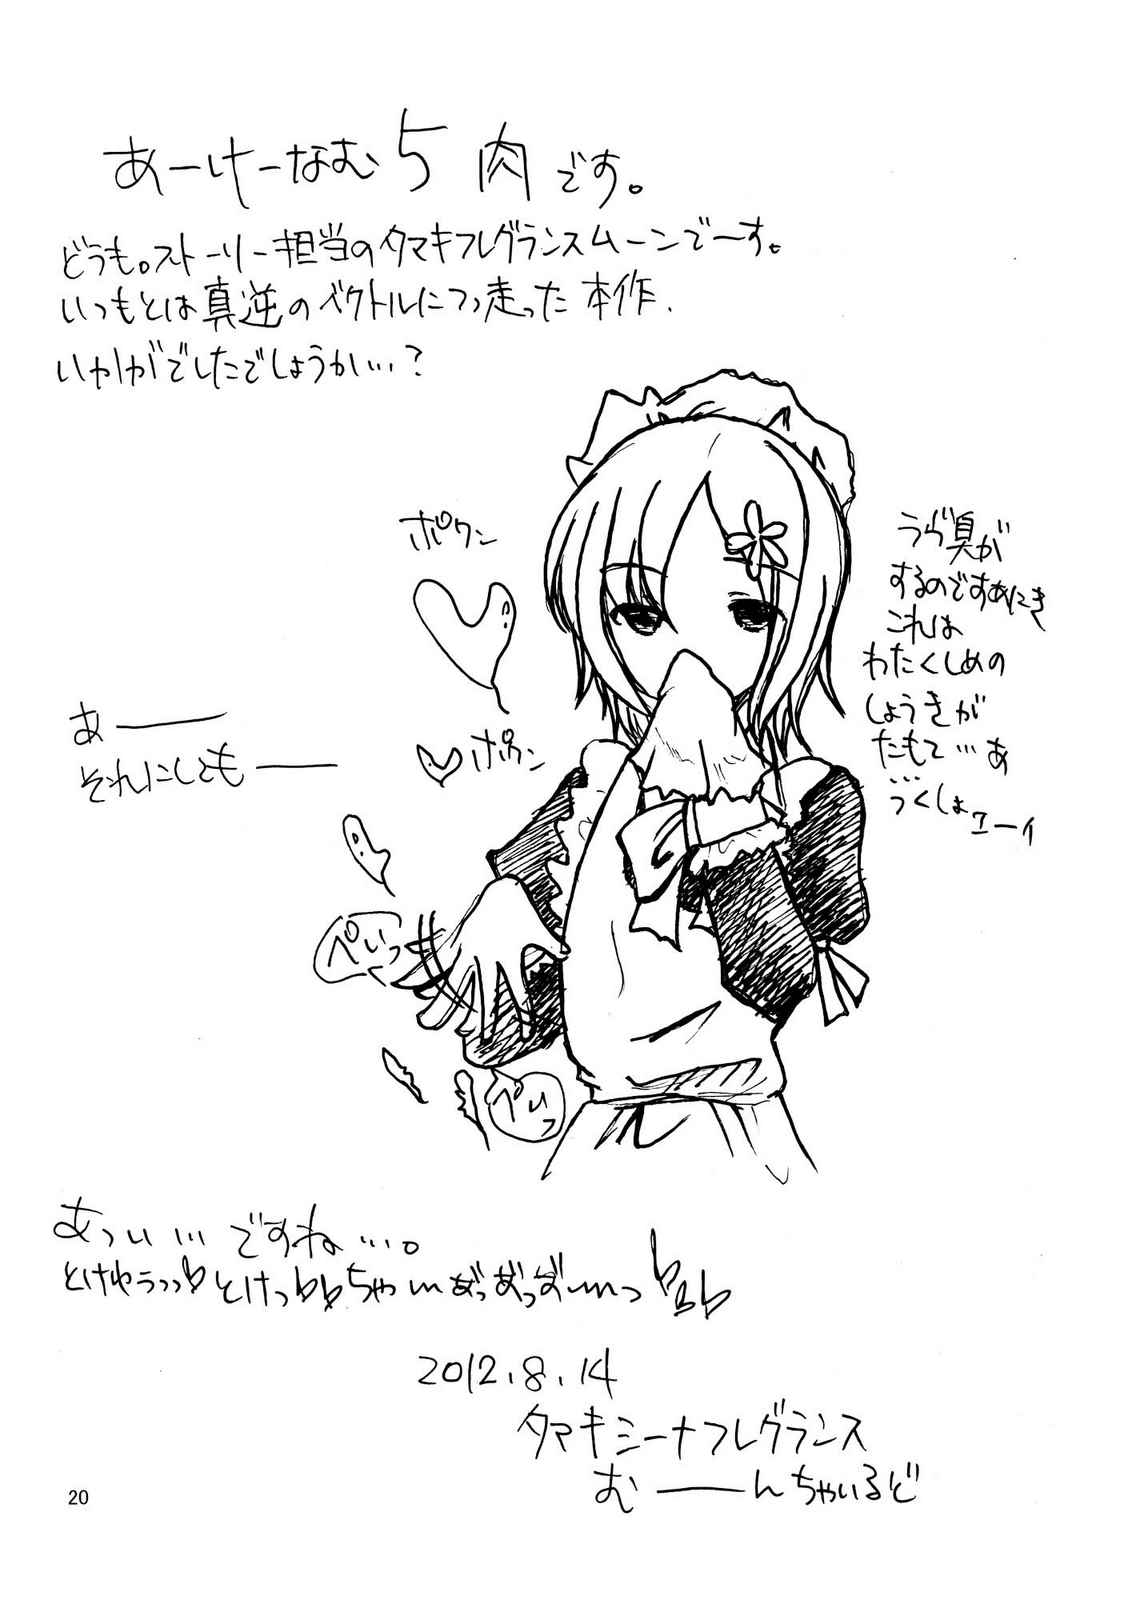 あーけーなむ5 肉です。
どうも。ストーリー担当のタマキフレグランスムーンでーす。
いつもとは真逆のベクトルにつっ走った本作、
いかがでしたでしょうか…?
ポワン
ポワン
あー
それにしてもー
ぺいっ
ぺいっ
臭が
するのですあにき
これは
わたくしめの
しょうきが
たもて…あ
…
っくしょ
エーイ
あつい…ですね…。
2012.8.14
タマキシーナフレグランス
むーんちゃいるど
20